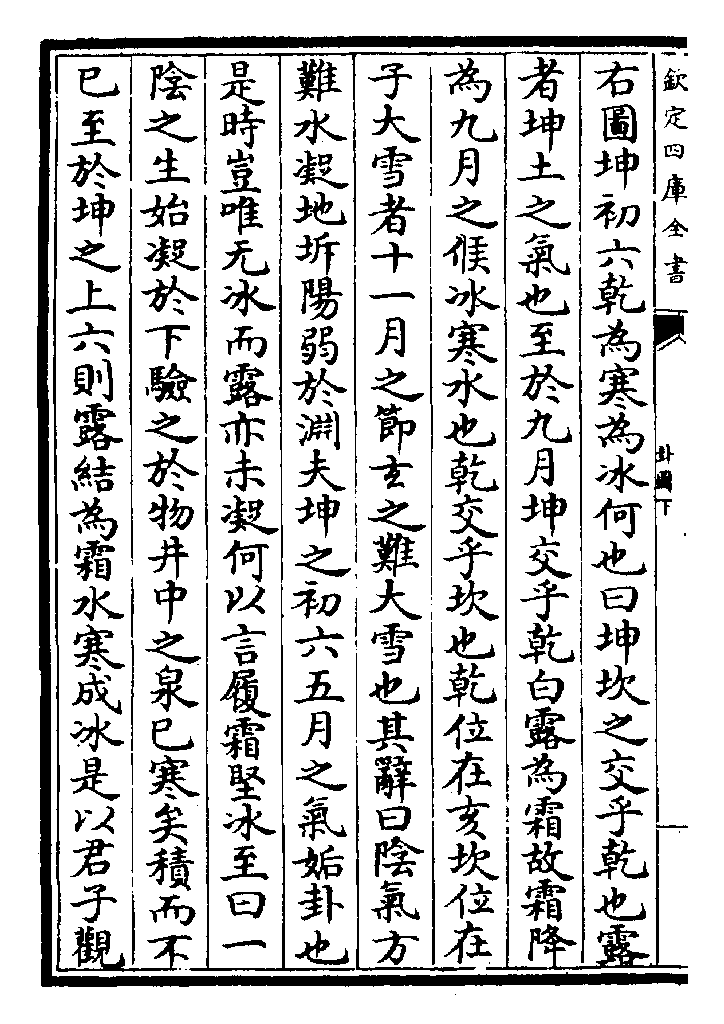 欽定四庫全書
卦圖下
右圖坤初六乾為寒為冰何也曰坤坎之交乎乾也露
者坤土之氣也至於九月坤交乎乾白露為霜故霜降
為九月之候冰寒水也乾交乎坎也乾位在亥坎位在
子大雪者十一月之節玄之難大雪也其辭曰陰氣方
難水凝地坼陽弱於淵夫坤之初六五月之氣姤卦也
是時豈唯无冰而露亦未凝何以言履霜堅冰至曰一
陰之生始凝於下驗之於物井中之泉已寒矣積而不
已至於坤之上六則露結為霜水寒成冰是以君子觀